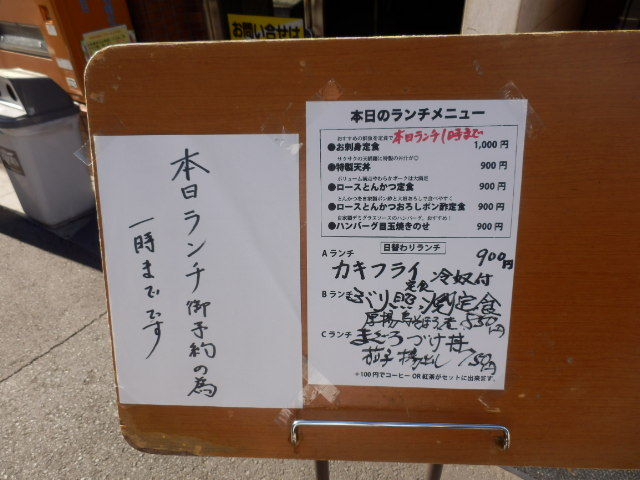 お問い合せは
本日ランチ御予約の為
一時までです
本日のランチメニュー
おすすめの鮮魚を定食で
本日ランチ1時まで
●お刺身定食 1,000円
●特製天丼 900円
ボリューム満点やわらかポークは大満足
●ロースとんかつ定食 900円
●ロースとんかつおろしポン酢定食 900円
自家製デミグラスソースのハンバーグ、おすすめ!
●ハンバーグ目玉焼きのせ 900円
日替わりランチ
Aランチ 900円
カキフライ定食 冷奴付
Bランチ
ぶり照り焼定食
厚揚鳥そぼろ煮 850円
Cランチ
まぐろづけ丼
茄子揚出し 750円
+100円でコーヒーOR紅茶がセットに出来ます。